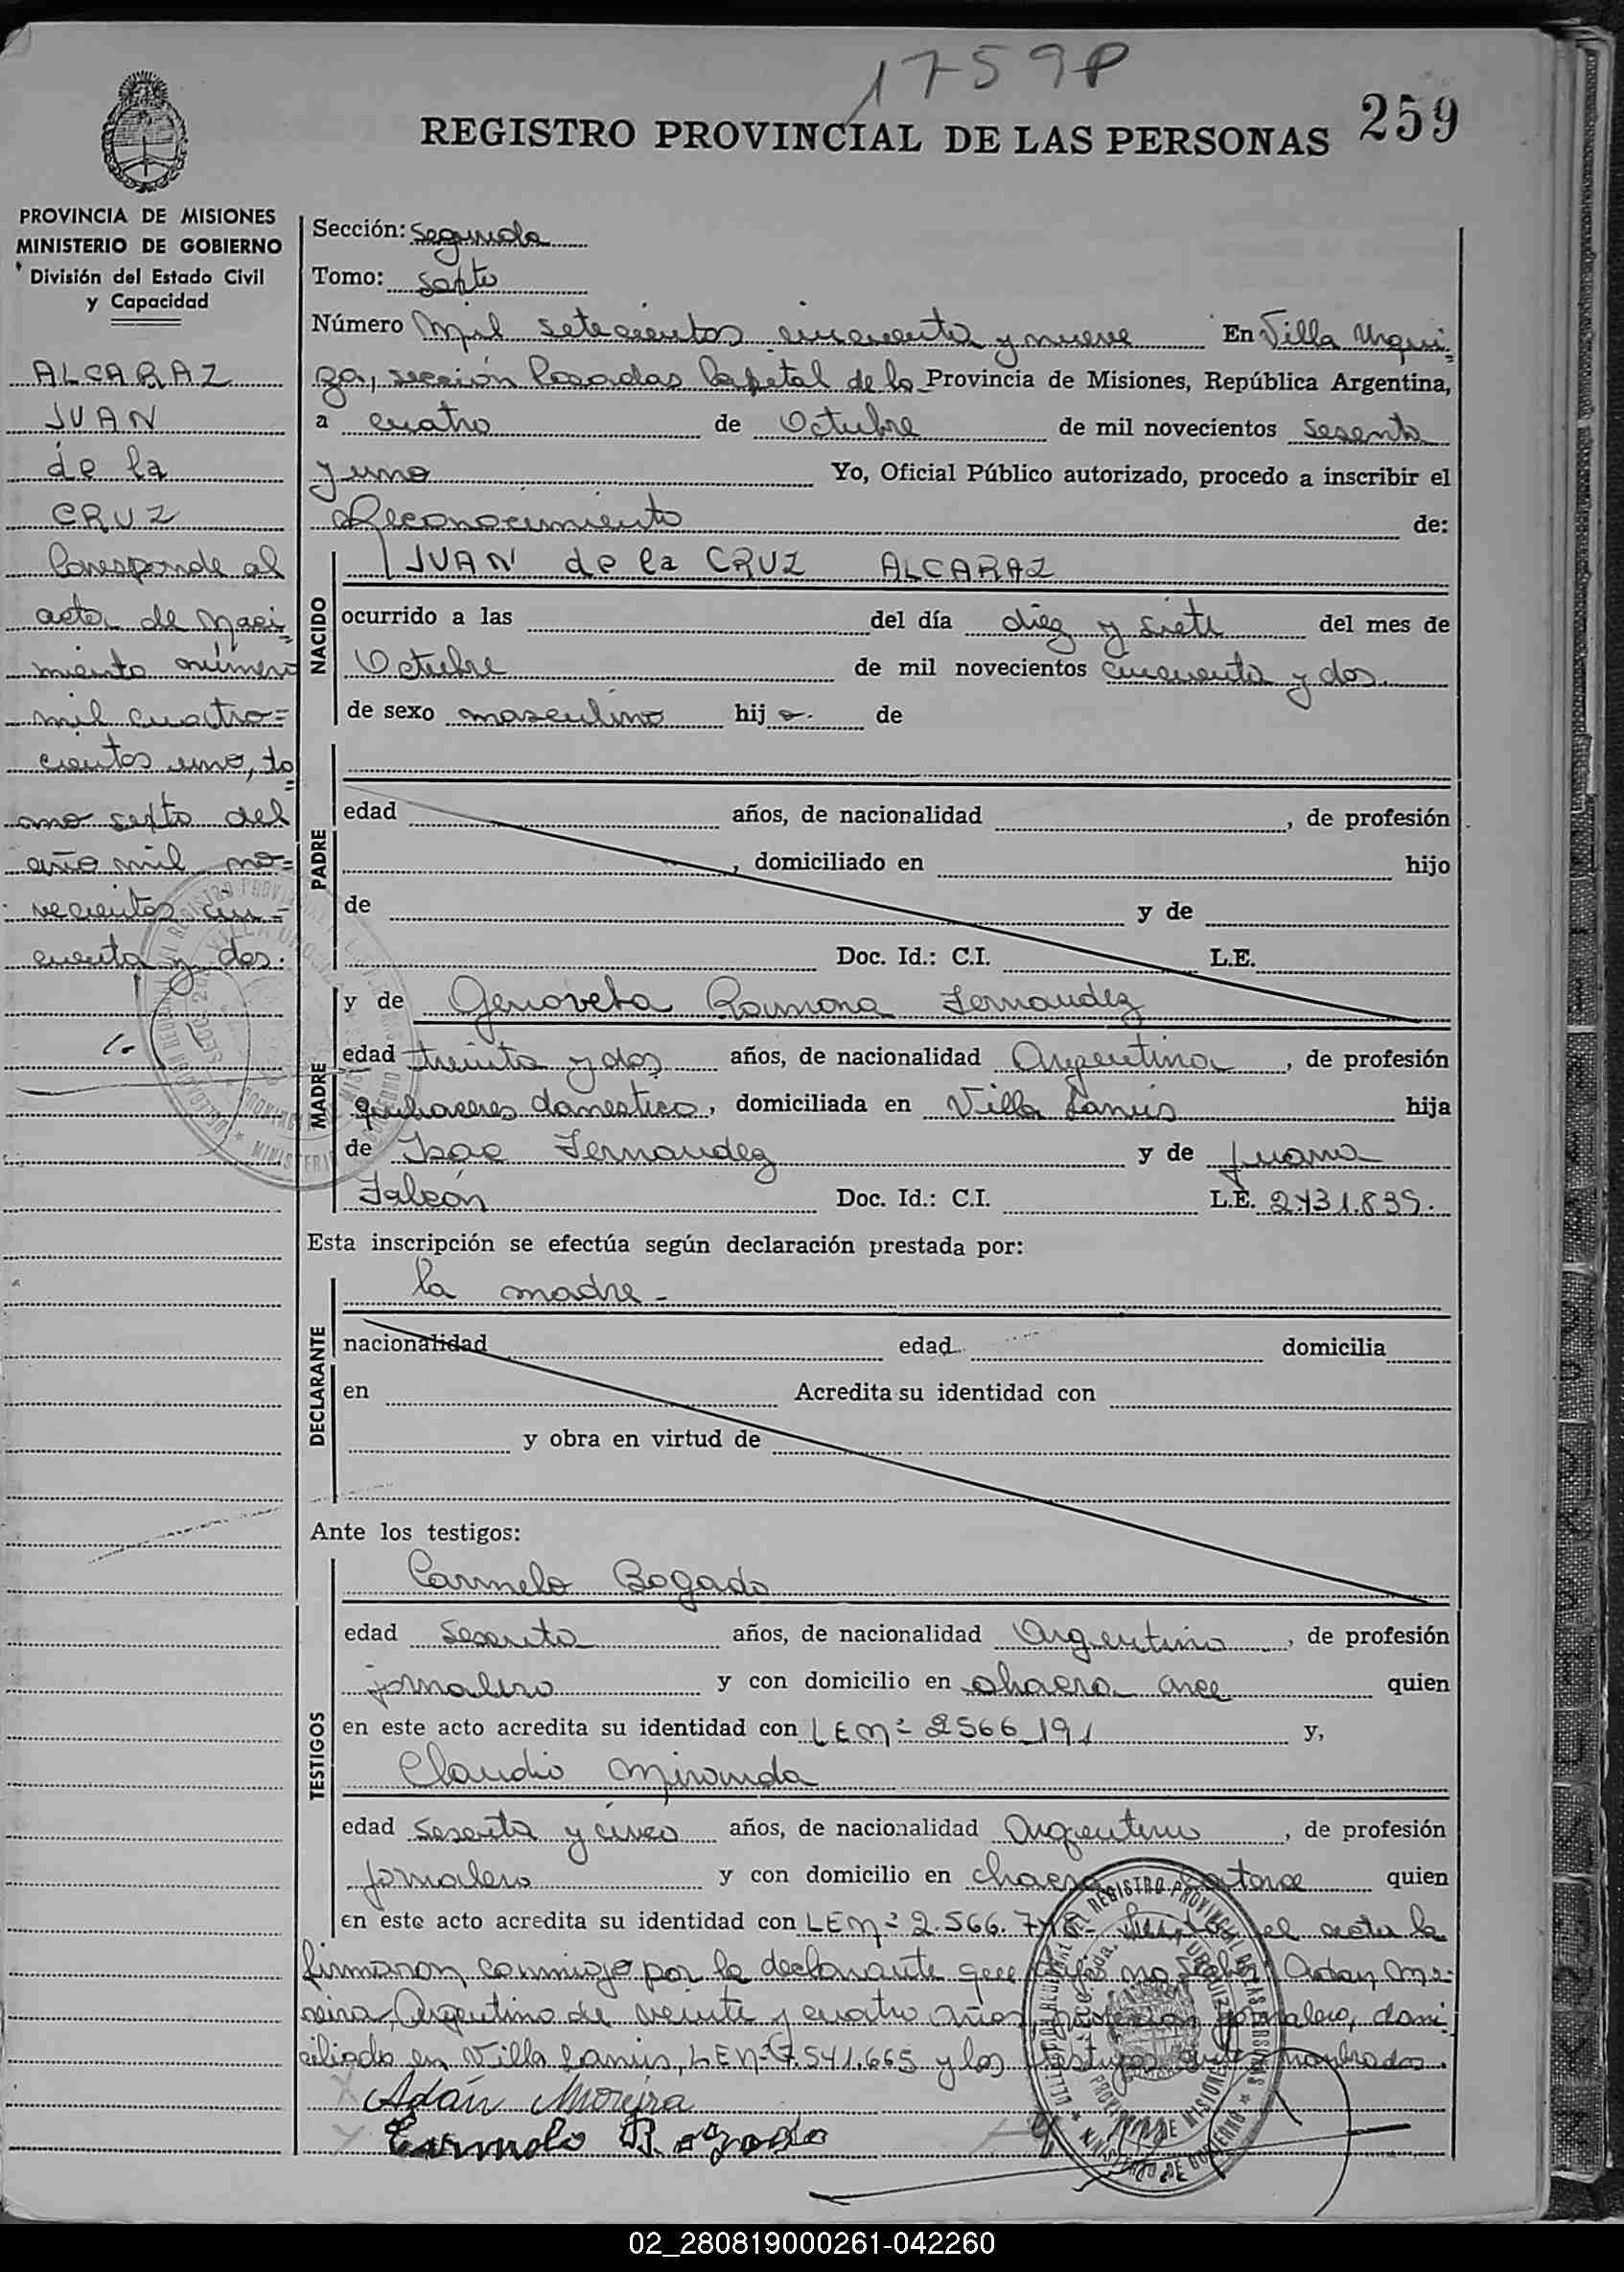 1759P
259
REGISTRO PROVINCIAL DE LAS PERSONAS
PROVINCIA DE MISIONES
MINISTERIO DE GOBIERNO
División del Estado Civil
y Capacidad
ALCARAZ
JUAN
de la
CRUZ
Corresponde al
acta de Naci-
miento número
mil cuatro=
cientos uno, to
omo sexto del
año mil no=
vecientos cin=
cuenta y dos.
Sección: Segunda
Tomo: Sexto
Número Mil setecientos cincuenta y nueve En Villa Urqui-
za, sección Posadas Capital de la Provincia de Misiones, República Argentina,
a cuatro de Octubre de mil novecientos sesenta
y uno Yo, Oficial Público autorizado, procedo a inscribir el
Reconocimiento de:
NACIDO
JUAN de la CRUZ ALCARAZ
ocurrido a las del día diez y siete del mes de
Octubre de mil novecientos cincuenta y dos
de sexo masculino hij o. de
PADRE
edad años, de nacionalidad , de profesión
, domiciliado en hijo
de y de
Doc. Id.: C.I. L.E.
MADRE
y de Genoveba Ramona Fernandez
edad treinta y dos años, de nacionalidad Argentina , de profesión
quehaceres domestico, domiciliada en Villa Lanús hija
de Isac Fernandez y de Juana
Falcón Doc. Id.: C.I. L.E. 2.731.839.
Esta inscripción se efectúa según declaración prestada por:
DECLARANTE
la madre -
nacionalidad edad domicilia
en Acredita su identidad con
y obra en virtud de
Ante los testigos:
TESTIGOS
Carmelo Bogado
edad Sesenta años, de nacionalidad Argentino , de profesión
jornalero y con domicilio en chacra once quien
en este acto acredita su identidad con LENº 2566191 y,
Claudio Miranda
edad Sesenta y cinco años, de nacionalidad Argentino , de profesión
jornalero y con domicilio en chacra catorce quien
en este acto acredita su identidad con LENº 2.566.748- el acta la
firmaron conmigo por la declarante que dijo no saber Adan Mo-
reira, Argentino de veinte y cuatro años, profesion jornalero, domi
ciliado en Villa Lanús, LENº 7.541.665 y los testigos ante nombrados.
Adán Moreira
Carmelo Bogado
02_280819000261-042260